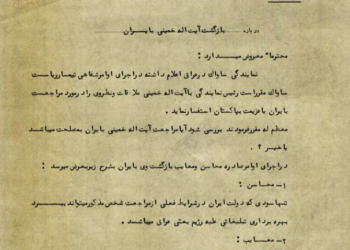 درباره بازگشت آیت اله خمینی بایران
محترماً معروض میدارد :
نمایندگی ساواک درعراق اعلام داشته دراجرای اوامرشفاهی تیمسارریاست
ساواک مقرراست رئیس نمایندگی باآیت اله خمینی ملاقات ونظروی رادرمورد مراجعت
بایران یاعزیمت بپاکستان استفسارنماید .
معظم له مقررفرمودند بررسی شودآیامراجعت آیت اله خمینی بایران بمصلحت میباشد
یاخیر ؟
دراجرای اوامرصادره محاسن ومعایب بازگشت وی بایران بشرح زیربعرض میرسد :
۱- محاسن :
تنهاسودی که دولت ایران درشرایط فعلی ازمراجعت شخص مذکورمیتواند ببرد
بهره برداری تبلیغاتی علیه رژیم بعثی عراق میباشد .
۲- معایب :